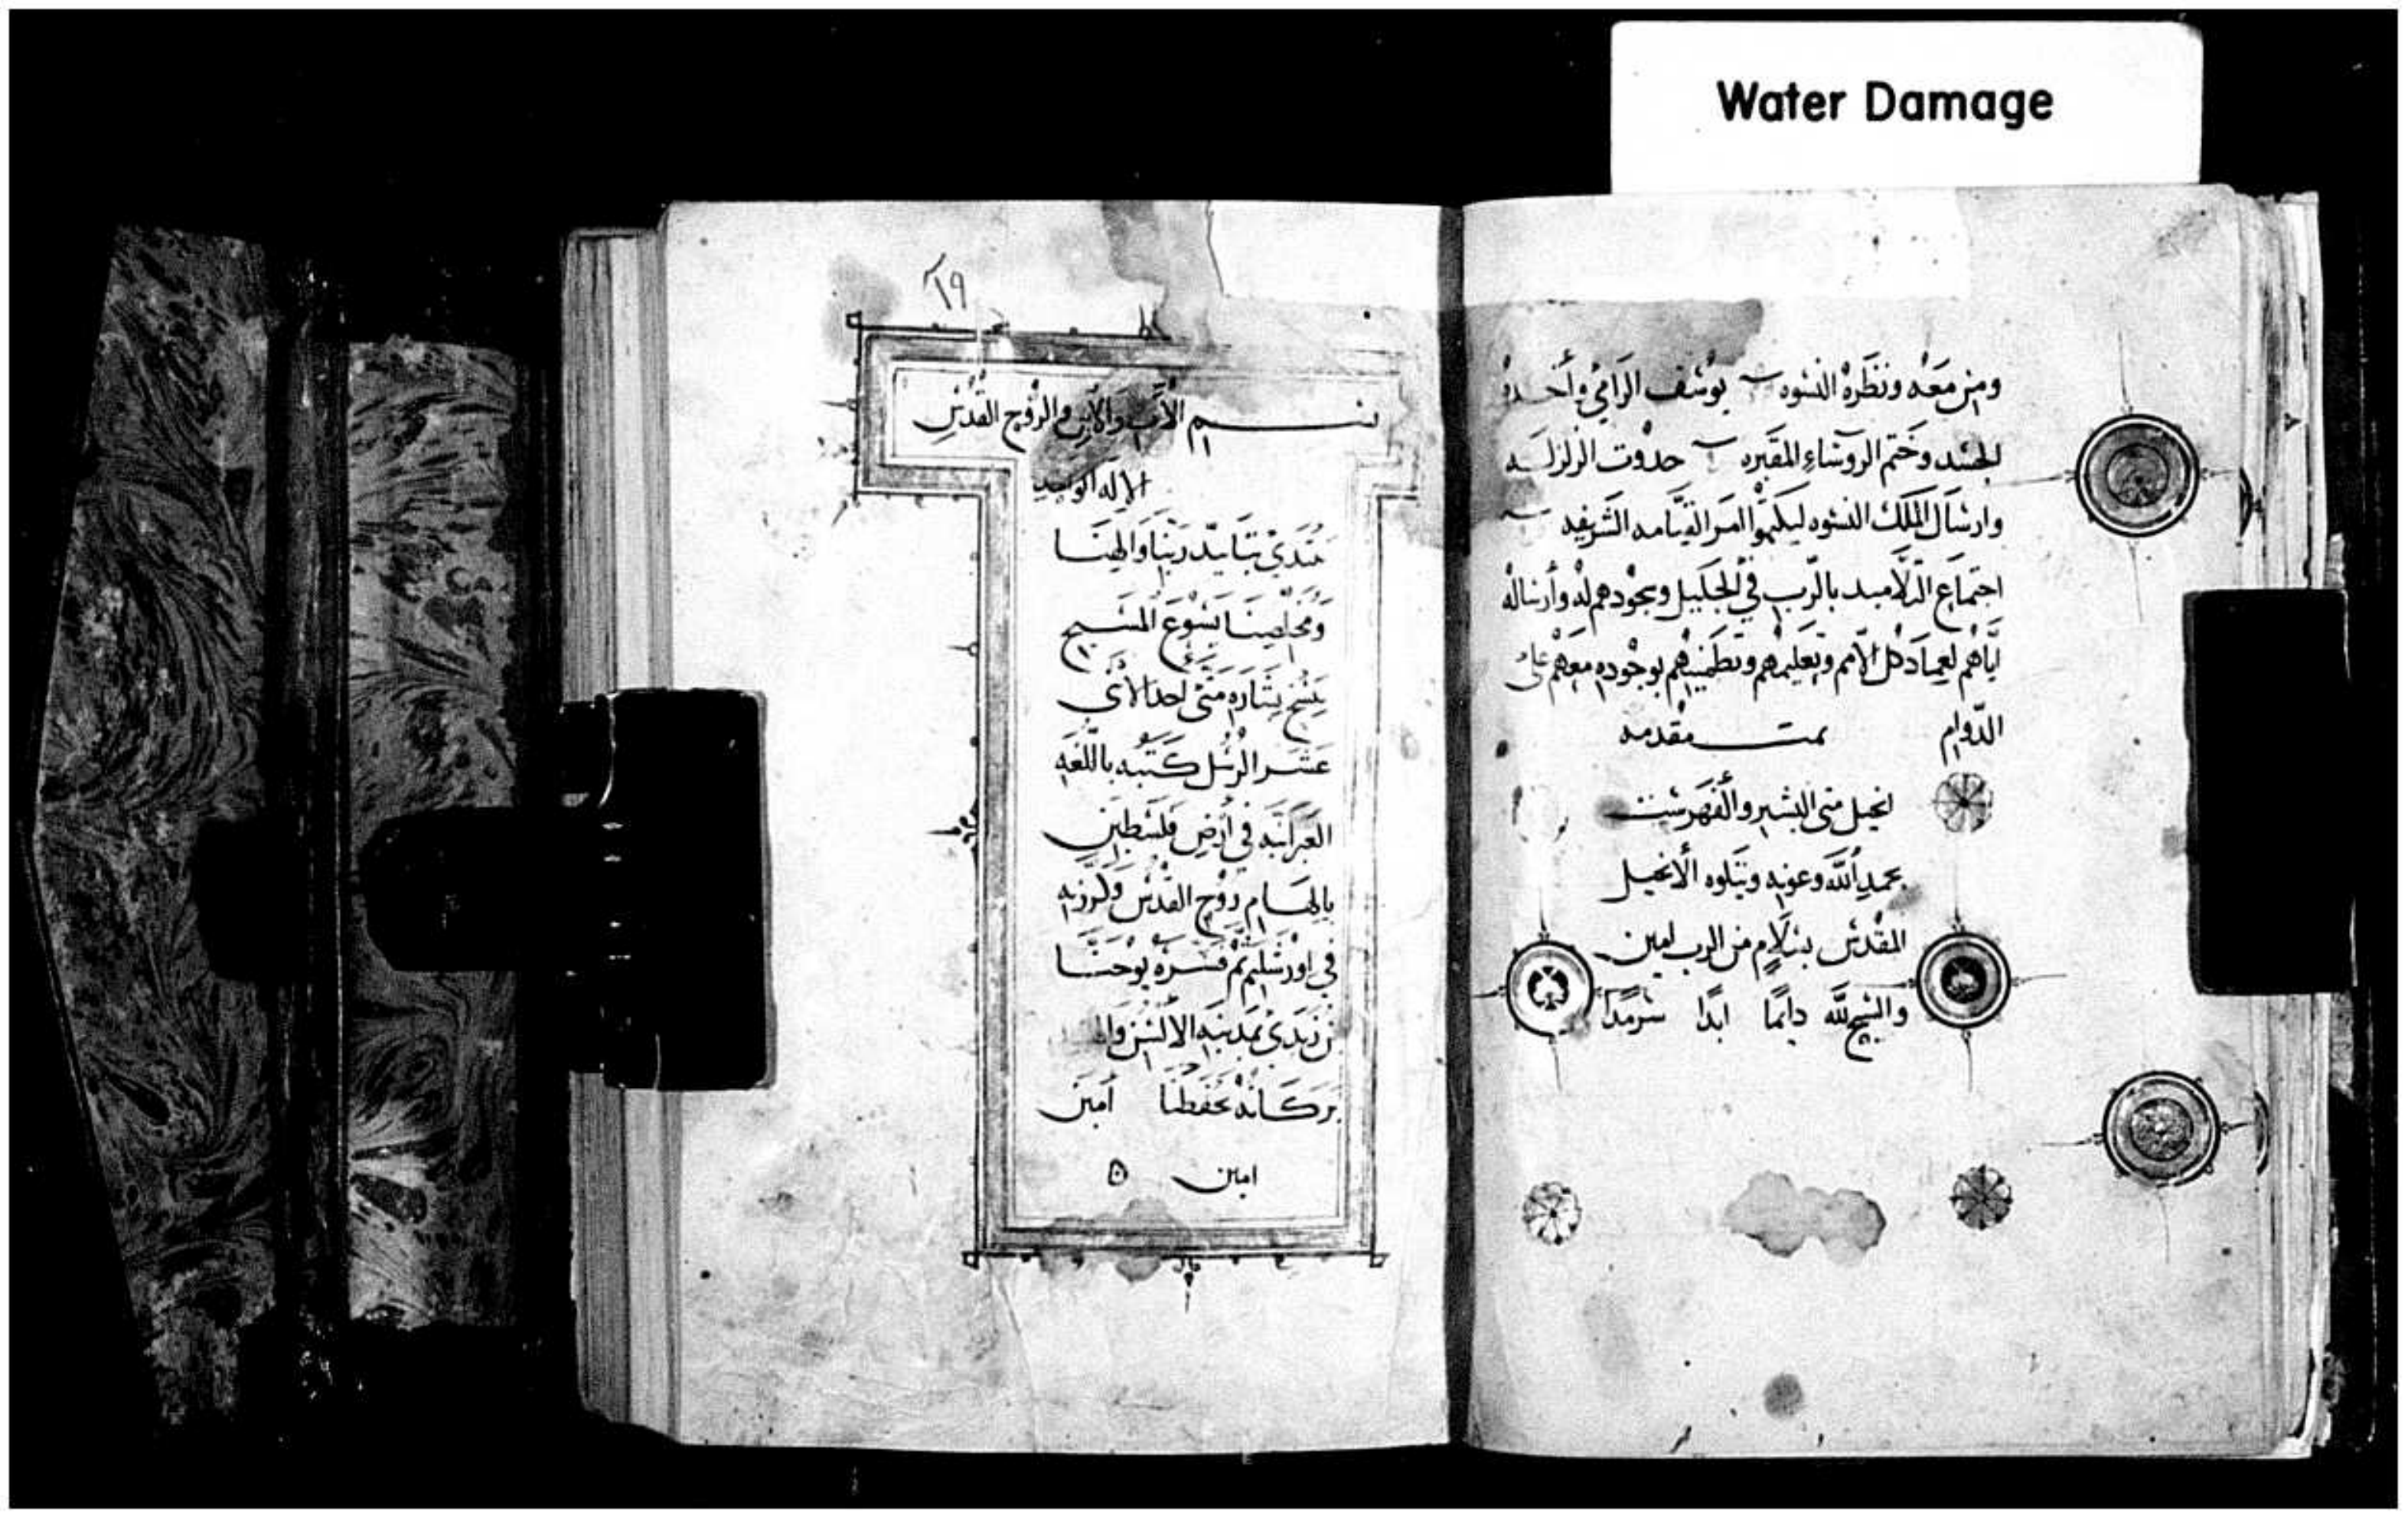 Water Damage
ومن معه ونظره النسوه يوسف الرامي وأخده
الجسد وختم الروساء المقبره حدوت الزلزله
وارسال الملك النسوه ليكيموا القيامه الشريفه
اجتماع التلاميد بالرب في الجليل وسجودهم له وأرساله
اياهم لعماد كل الامم وتعليمهم وتطمينهم بوجوده معهم على
الدوام تمت مقدمه
انجيل متى البشير والفهرست
بحمد الله وعونه ويتلوه الانجيل
المقدس بسلام من الرب امين
والسبح لله دايما ابدا سرمدا
١٩
بسم الأب والابن والروح القدس
الاله الواحد
نبتدي بتاييد ربنا والهنا
ومخلصنا يسوع المسيح
بنسخ بشاره متى احد الاثنى
عشر الرسل كتبه باللغه
العبرانيه في أرض فلسطين
بالهام روح القدس وكرز به
في اورشليم ثم فسره يوحنا
بن زبدى بمدينه الالسن
بركاته تحفظنا أمين
امين